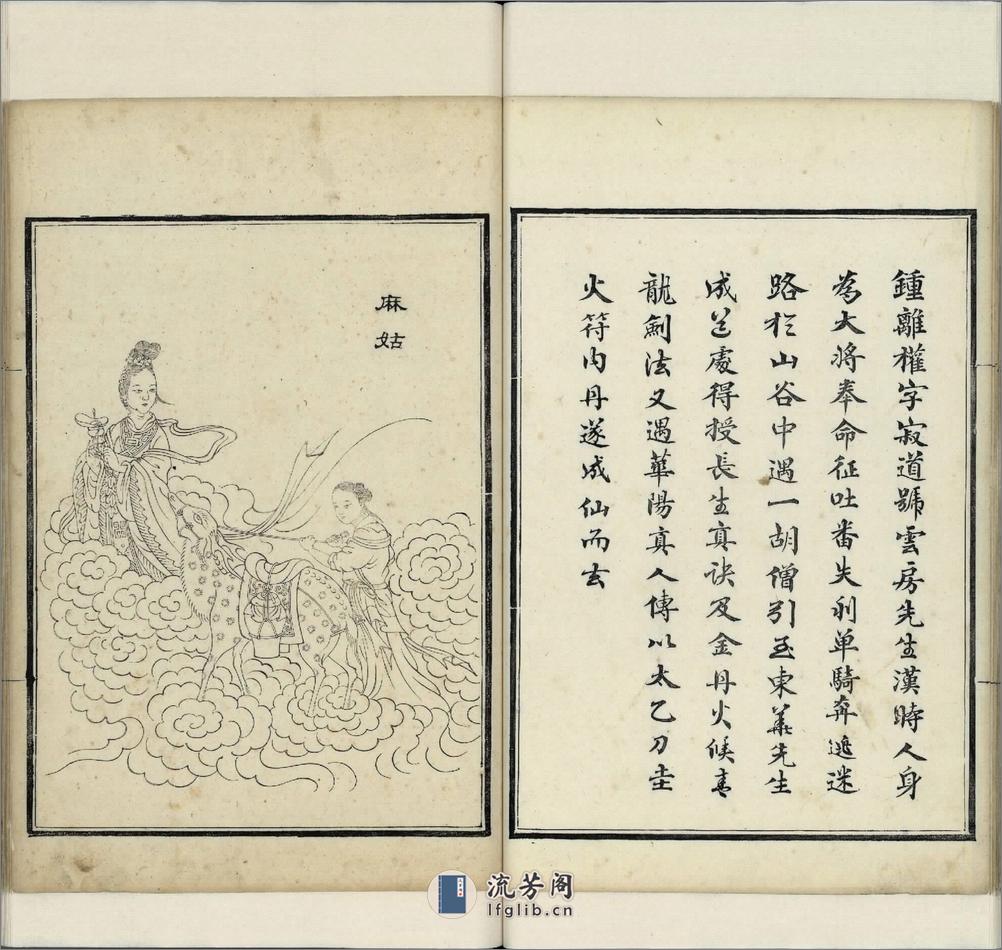 鍾離權字寂道號雲房先生漢時人身
為大將奉命征吐番失利单騎奔逃迷
路於山谷中遇一胡僧引至東華先生
成道處得授長生真诀及金丹火候青
龍劍法又遇華陽真人傳以太乙刀圭
火符内丹遂成仙而去
麻姑
流芳阁
lfglib.cn